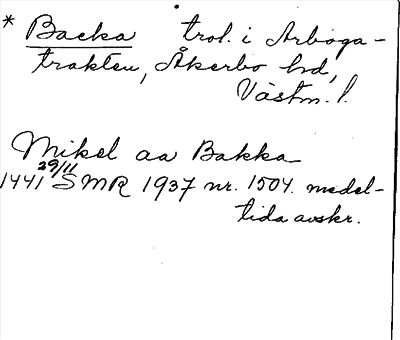 * Backa trol. i Arboga-
trakten, Åkerbo hd,
Västm. l.
Mikel aa Bakka
1441 29/11 SMR 1937 nr. 1504. medel-
tida avskr.